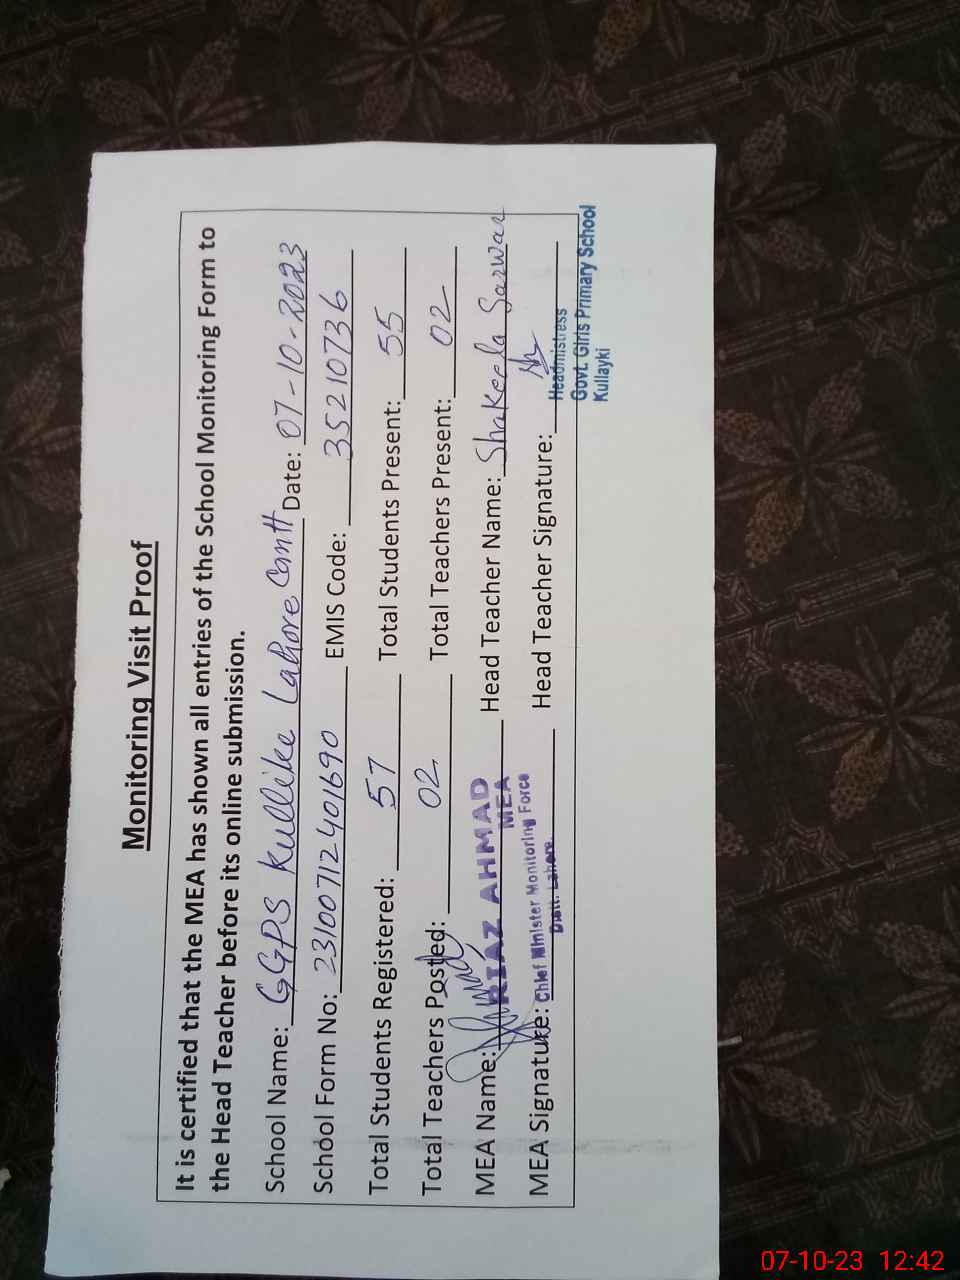 Monitoring Visit Proof
It is certified that the MEA has shown all entries of the School Monitoring Form to
the Head Teacher before its online submission.
School Name: GGPS Kullike Lahore Cantt Date: 07-10-2023
School Form No: 23100712401690 EMIS Code: 35210736
Total Students Registered: 57 Total Students Present: 55
Total Teachers Posted: 02 Total Teachers Present: 02
MEA Name: RIAZ AHMAD Head Teacher Name: Shakeela Sarwar
MEA
MEA Signature: Chief Minister Monitoring Force Head Teacher Signature:
Distt. Lahore.
Headmistress
Govt. Girls Primary School
Kullayki
07-10-23 12:42